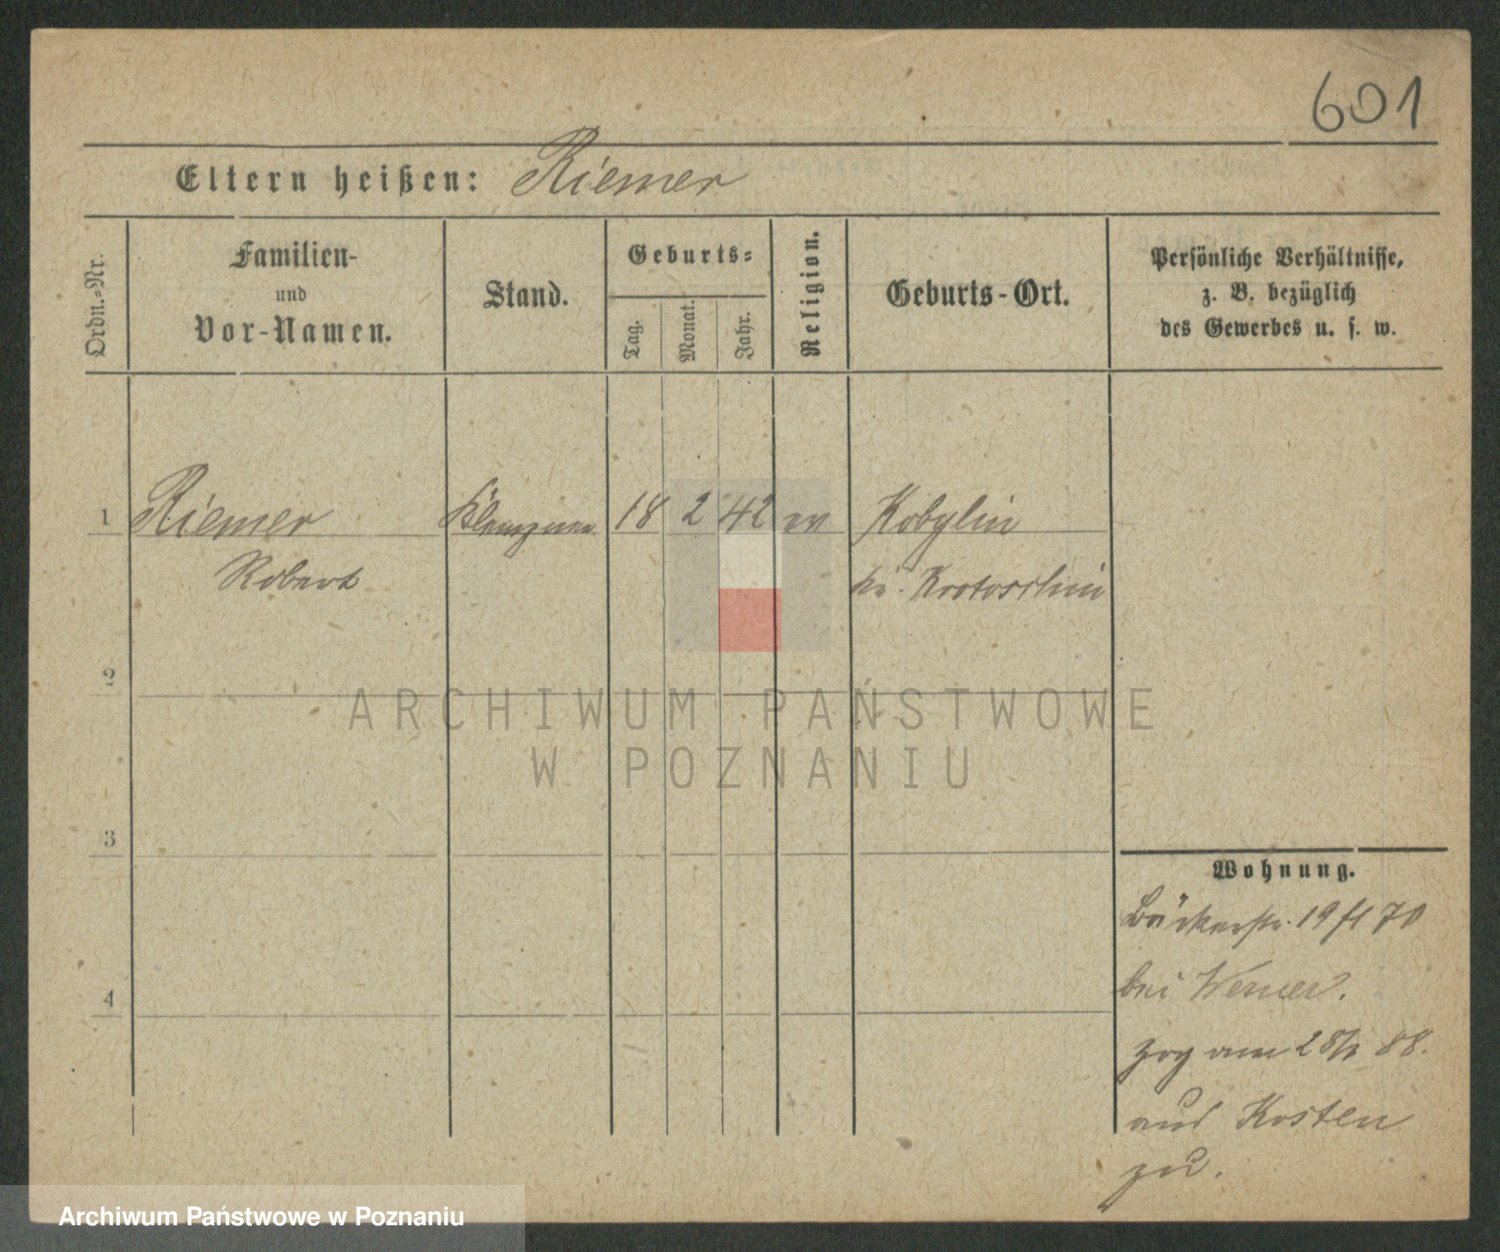 601
Eltern heißen: Riemer
Ordn.=Nr.
Familien-
und
Vor-Namen.
Stand.
Geburts=
Tag.
Monat.
Jahr.
Religion.
Geburts-Ort.
Persönliche Verhältnisse,
z. B. bezüglich
des Gewerbes u. s. w.
1 Riemer Klempner 18 2 42 Kobylin
Robert Kr. Krotoschin
2
3
4
ARCHIWUM PAŃSTWOWE
W POZNANIU
Wohnung.
Bäckerstr. 19
bei Werner.
zog am 88.
aus Kosten
zu.
Archiwum Państwowe w Poznaniu